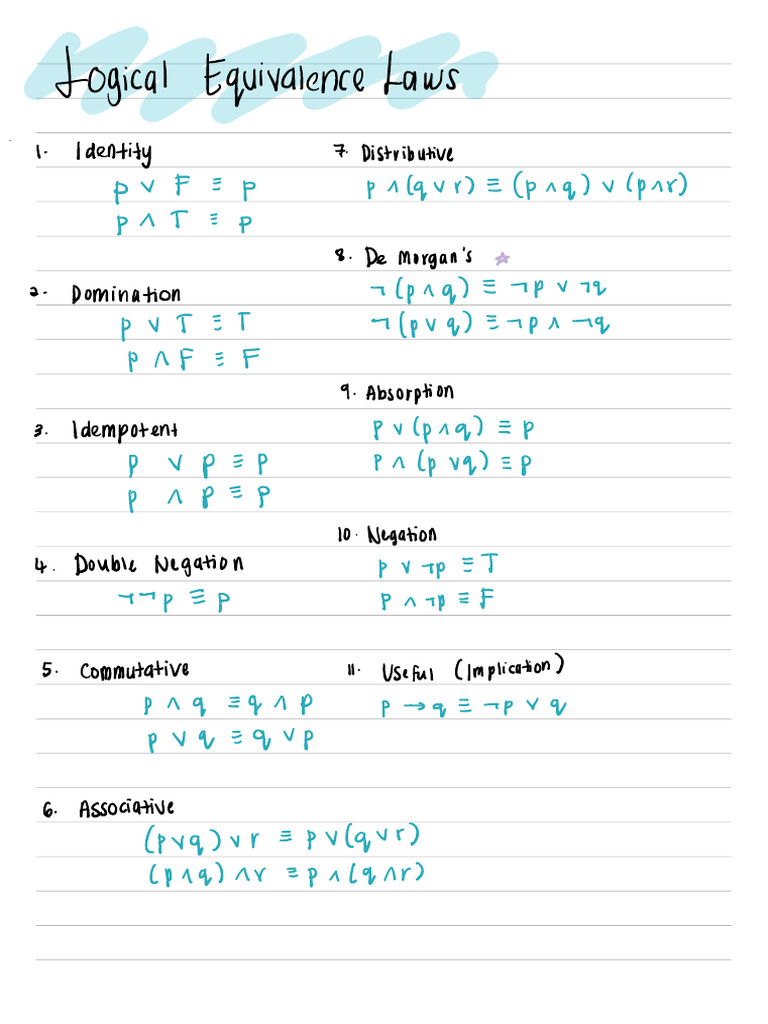 Logical Equivalence Laws
1. Identity
p ∨ F ≡ p
p ∧ T ≡ p
2. Domination
p ∨ T ≡ T
p ∧ F ≡ F
3. Idempotent
p ∨ p ≡ p
p ∧ p ≡ p
4. Double Negation
¬¬p ≡ p
5. Commutative
p ∧ q ≡ q ∧ p
p ∨ q ≡ q ∨ p
6. Associative
(p ∨ q) ∨ r ≡ p ∨ (q ∨ r)
(p ∧ q) ∧ r ≡ p ∧ (q ∧ r)
7. Distributive
p ∧ (q ∨ r) ≡ (p ∧ q) ∨ (p ∧ r)
8. De Morgan's
¬(p ∧ q) ≡ ¬p ∨ ¬q
¬(p ∨ q) ≡ ¬p ∧ ¬q
9. Absorption
p ∨ (p ∧ q) ≡ p
p ∧ (p ∨ q) ≡ p
10. Negation
p ∨ ¬p ≡ T
p ∧ ¬p ≡ F
11. Useful (Implication)
p → q ≡ ¬p ∨ q